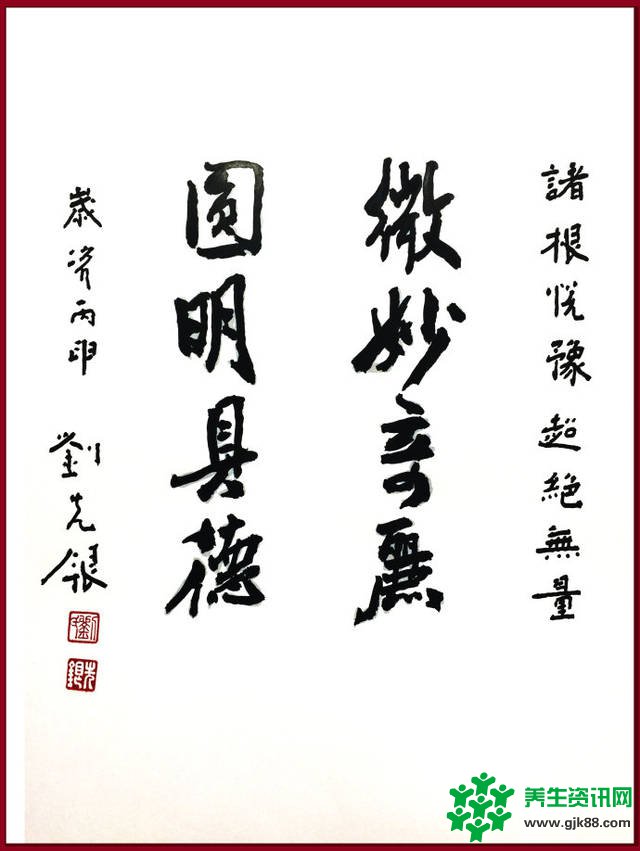 諸根悦豫超絶無量
微妙奇麗
圓明具德
歲次丙申
劉先銀
養生资讯网
www.gjk88.com